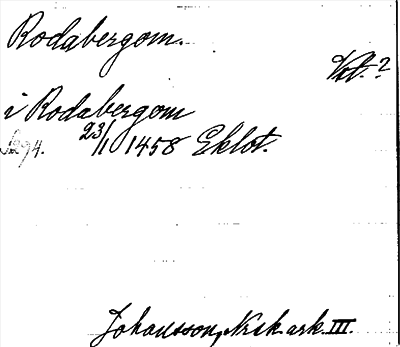 Rodabergom.
Vrt.?
i Rodabergom
23/1 1458 Eklöt.
Johansson, Nrsk ark. III.